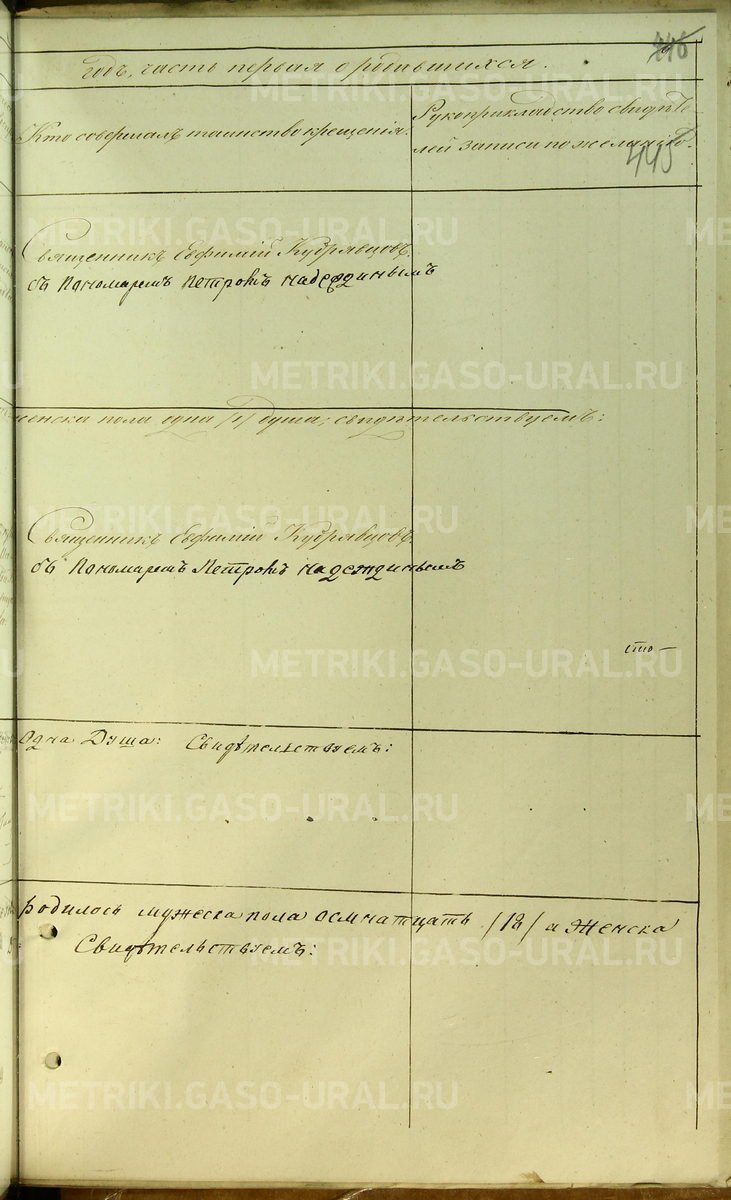 246
годъ, часть первая о родившихся.
Кто совершалъ таинство крещенія.
Рукоприкладство свидѣте
лей записи по желанію.
445
Священникъ Евфимій Кудрявцовъ.
съ Пономаремъ Петромъ Надеждинымъ
женска пола одна /1/ душа; свидѣтельствуемъ:
Священникъ Евфимій Кудрявцовъ.
съ Пономаремъ Петромъ Надеждинымъ
сто —
одна Душа: Свидѣтельствуемъ:
родилось мужеска пола осмнатцать /18/ и Женска
Свидѣтельствуемъ:
METRIKI.GASO-URAL.RU